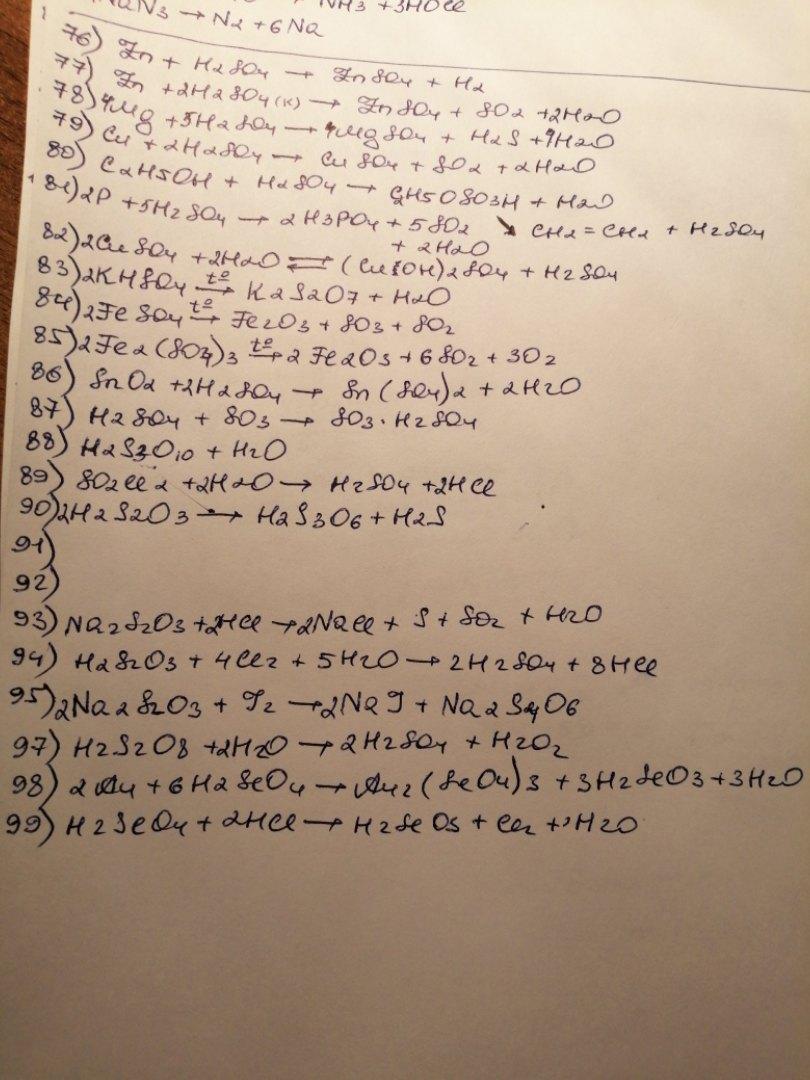 NH3 + 3HOCl
NaN3 → N2 + 6Na
76) Zn + H2SO4 → ZnSO4 + H2
77) Zn + 2H2SO4(к) → ZnSO4 + SO2 + 2H2O
78) 4Mg + 5H2SO4 → 4MgSO4 + H2S + 4H2O
79) Cu + 2H2SO4 → CuSO4 + SO2 + 2H2O
80) C2H5OH + H2SO4 → C2H5OSO3H + H2O
↘ CH2 = CH2 + H2SO4
81) 2P + 5H2SO4 → 2H3PO4 + 5SO2
+ 2H2O
82) 2CuSO4 + 2H2O ⇌ (CuOH)2SO4 + H2SO4
83) 2KHSO4 t° → K2S2O7 + H2O
84) 2FeSO4 t° → Fe2O3 + SO3 + SO2
85) 2Fe2(SO4)3 t° → 2Fe2O3 + 6SO2 + 3O2
86) SnO2 + 2H2SO4 → Sn(SO4)2 + 2H2O
87) H2SO4 + SO3 → SO3 · H2SO4
88) H2S3O10 + H2O
89) SO2Cl2 + 2H2O → H2SO4 + 2HCl
90) 2H2S2O3 → H2S3O6 + H2S
91)
92)
93) Na2S2O3 + 2HCl → 2NaCl + S + SO2 + H2O
94) H2S2O3 + 4Cl2 + 5H2O → 2H2SO4 + 8HCl
95) 2Na2S2O3 + J2 → 2NaJ + Na2S4O6
97) H2S2O8 + 2H2O → 2H2SO4 + H2O2
98) 2Au + 6H2SeO4 → Au2(SeO4)3 + 3H2SeO3 + 3H2O
99) H2SeO4 + 2HCl → H2SeO3 + Cl2 + H2O